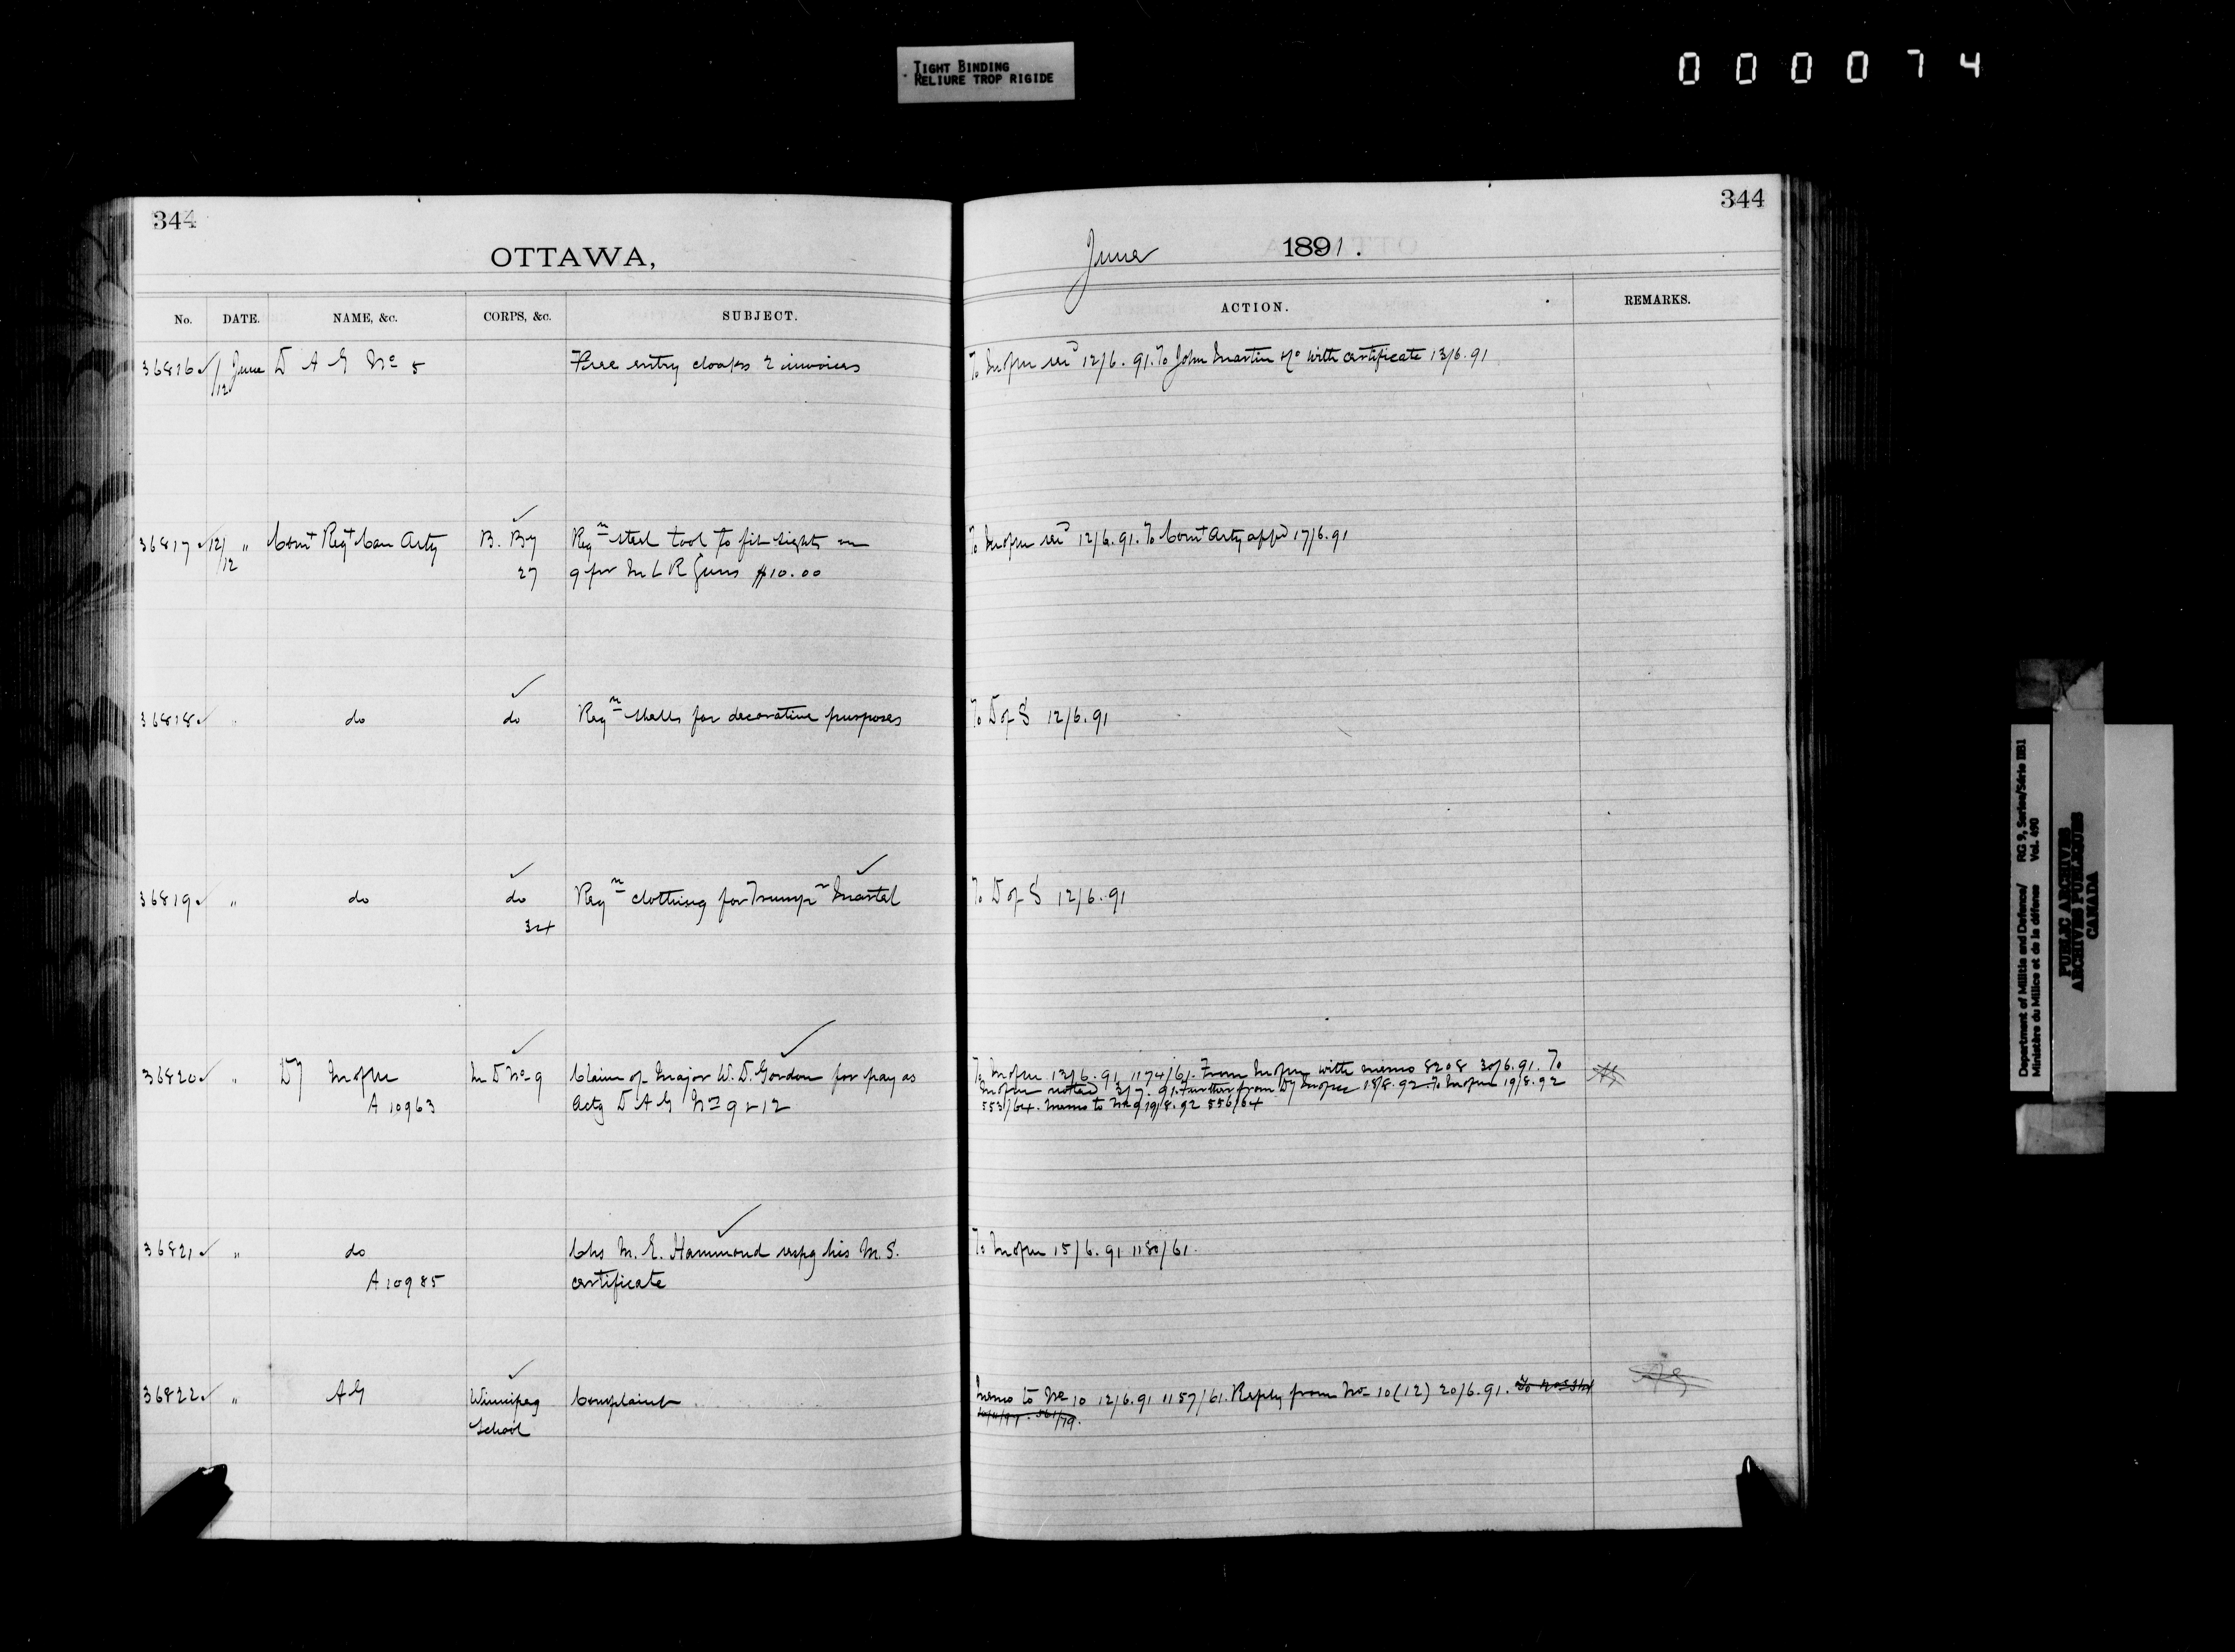 TIGHT BINDING
RELIURE TROP RIGIDE
0 0 0 0 7 4
344
OTTAWA,
344
June 1891.
No. DATE. NAME, &c. CORPS, &c. SUBJECT.
ACTION. REMARKS.
36816 12/12 June D A G No 5 Free entry cloaks 2 invoices
To 12/6.91. To John Martin &c with certificate 13/6.91
36817 12/12 " Comt Regt Can Arty B. By Reqn steel tool to fit sights on
27 9 pr M L R Guns $10.00
12/6.91. To Comt Arty appd 17/6.91
36818 " do do Reqn shells for decorative purposes
To D of S 12/6.91
36819 " do do Reqn clothing for Trumpr Martel
34
To D of S 12/6.91
36820 " Dy M D No 9 Claim of Major W. D. Gordon for pay as
A 10963 Actg D A G No 9 & 12
To 13/6.91 1174/61. From with memo 8208 30/6.91. To
noted 3/7.91. Further from Dy 18/8.92 To 19/8.92
553/64. Memo to No 9 19/8.92 556/64
36821 " do Chs M. E. Hammond respg his M. S.
A 10985 certificate
To 15/6.91 1180/61.
36822 " AG Winnipeg Complaint
School
Memo to No 10 12/6.91 1157/61. Reply from No 10 (12) 20/6.91.
Department of Militia and Defence/ RG 9, Series/Série IIB1
Ministère du Milice et de la défence Vol. 490
PUBLIC ARCHIVES
ARCHIVES PUBLIQUES
CANADA